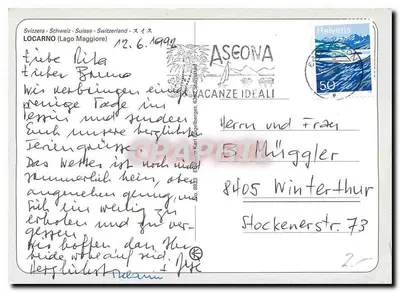 Svizzera - Schweiz - Suisse - Switzerland - スイス
LOCARNO (Lago Maggiore)
12.6.1992
Liebe Rita
Lieber Bruno
Wir verbringen einige
wenige Tage im
Tessin und senden
Euch unsere herzlichsten
Feriengrüsse.
Das Wetter ist noch nicht
sommerlich heiss, aber
angenehm genug, um
sich ein wenig zu
erholen und zu ver-
gessen.
Wir hoffen, dass Ihr
beide wohlauf seid.
Herzlichst
ASCONA
VACANZE IDEALI
Helvetia
50
Herrn und Frau
B. Müggler
8405 Winterthur
Stockenerstr. 73
2.-